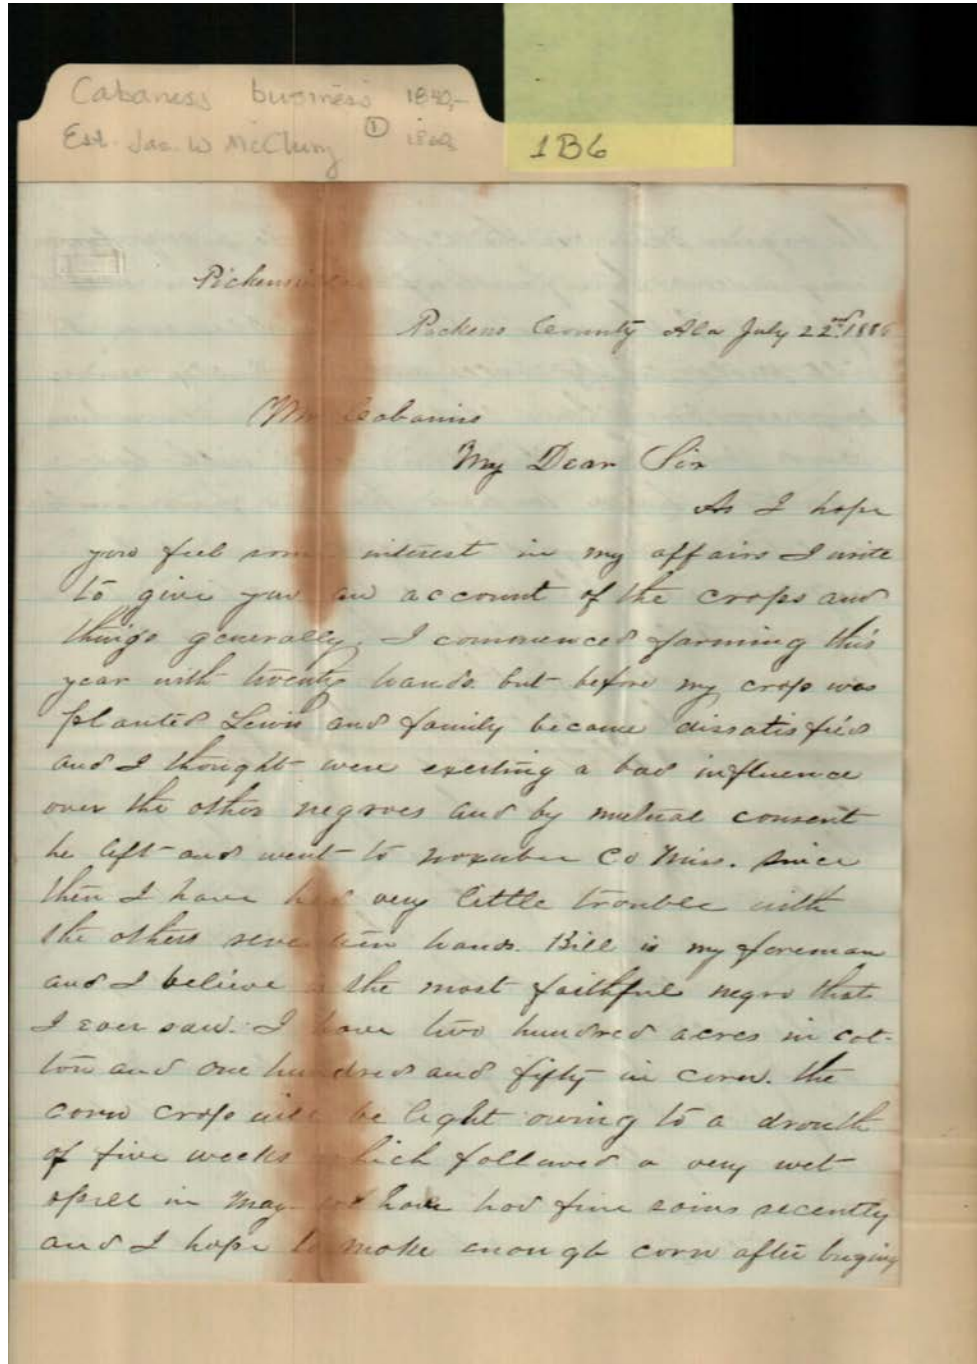 Cabaness business 1840,-
Est. Jas. W McClung ① 186
1B6
Pickens
Pickens County Ala July 22nd. 186
Mr Cabaniss
My Dear Sir
As I hope
you feel some interest in my affairs I write
to give you an account of the crops and
things generally. I commenced farming this
year with twenty hands but before my crop was
planted Lewis and family became dissatisfied
and I thought were exerting a bad influence
over the other negroes and by mutual consent
he left and went to Noxubee Co Miss. Since
then I have had very little trouble with
the others seventeen hands. Bill is my foreman
and I believe is the most faithful negro that
I ever saw. I have two hundred acres in cot-
ton and one hundred and fifty in corn. the
corn crop will be light owing to a drouth
of five weeks which followed a very wet
spell in May we have had fine rains recently
and I hope to make enough corn after buying